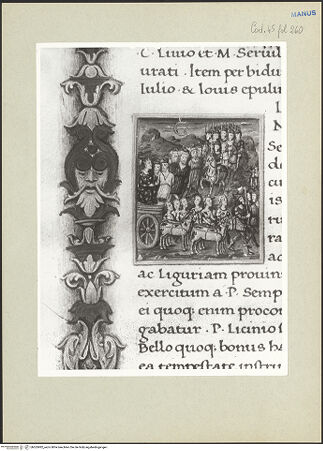 MANUS
Cod. 45 fol 260
C. Livio et M. Servil
urati. Item per bidu
Iulio & Iovis epulu
L
N
Se
de
cu
is
ru
ra
ac
ac Liguriam provin
exercitum a P. Semp
ei quoq; enim procon
gabatur. P. Licinio
Bello quoq; bonus ha
ea tempestate instru